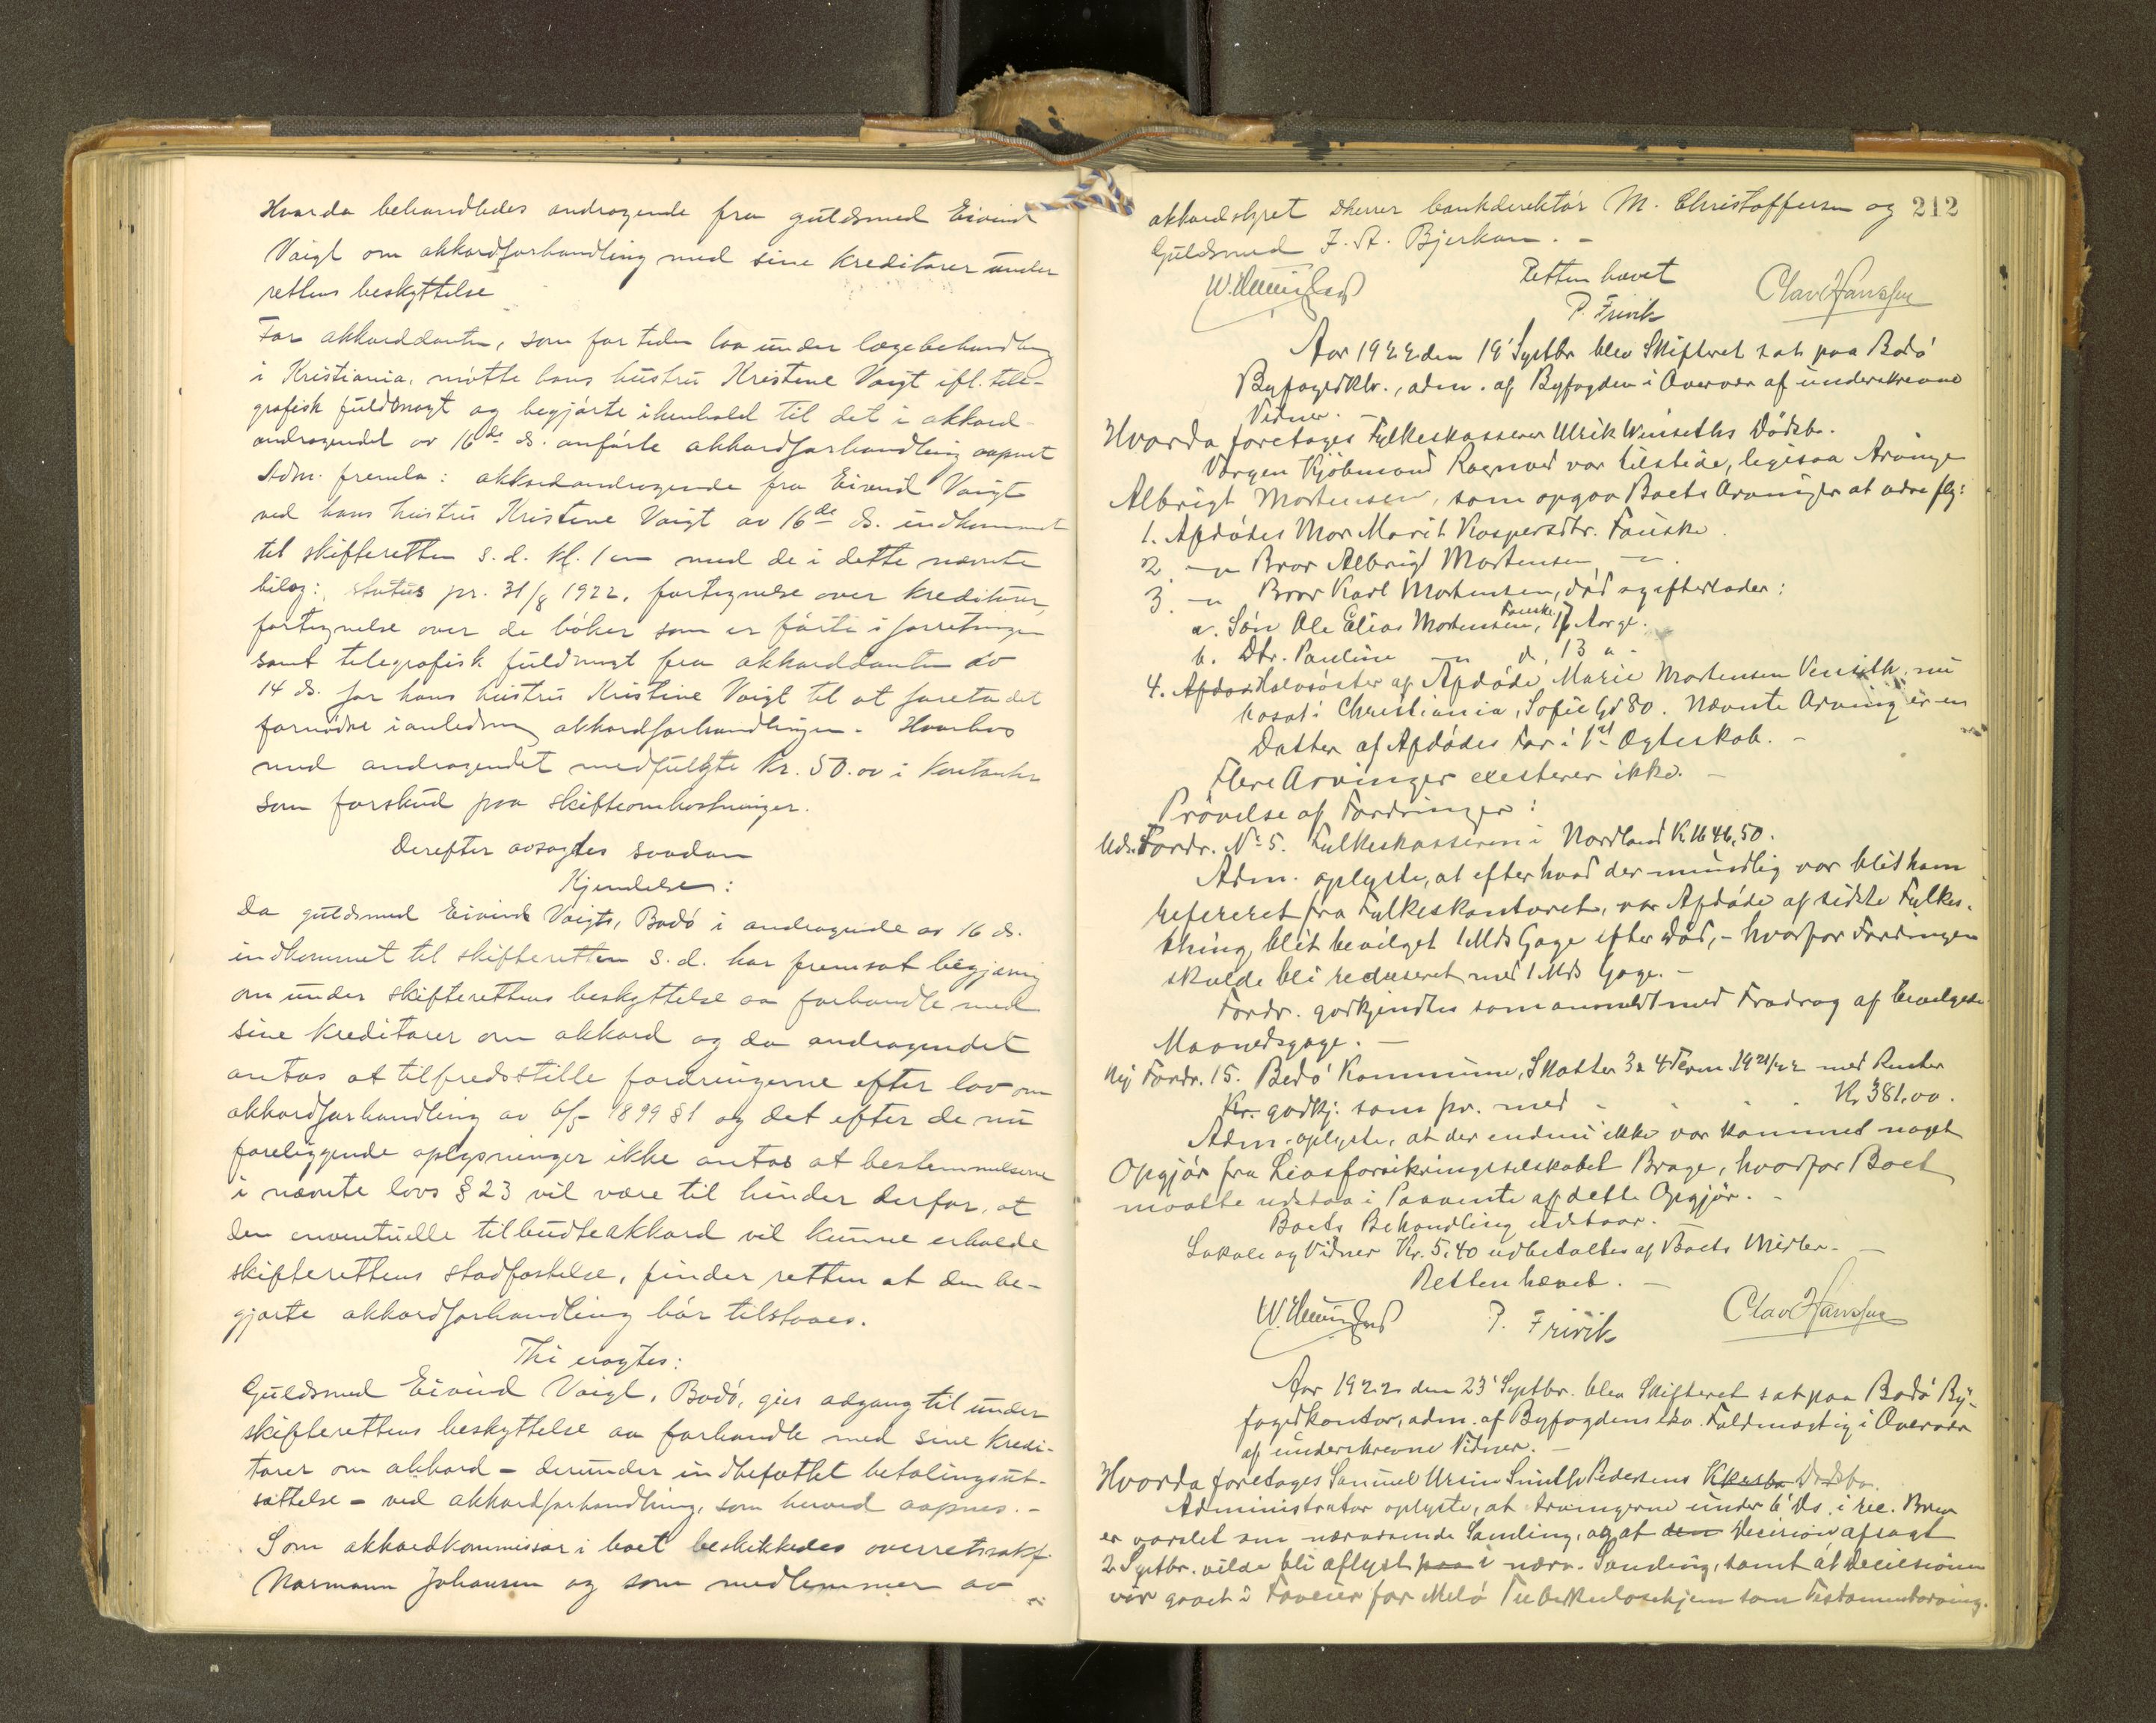 Hvorda behandledes andragende fra guldsmed Eivind
Voigt om akkordforhandling med sine kreditorer under
rettens beskyttelse
For akkorddanten, som for tiden laa under lægebehandling
i Kristiania, møtte hans hustru Kristine Voigt ifl. tele-
grafisk fuldmagt og begjærte i henhold til det i akkord-
andragendet av 16de ds. anførte akkordforhandling aapnet
Adm. fremla: akkordandragende fra Eivind Voigt
ved hans hustru Kristine Voigt av 16de ds. indkommet
til skifteretten s. d. kl. 1 em med de i dette nævnte
bilag: status pr. 31/8 1922, fortegnelse over kreditorer,
fortegnelse over de bøker som er førte i forretningen
samt telegrafisk fuldmagt fra akkorddanten av
14 ds. for hans hustru Kristine Voigt til at foreta det
fornødne i anledning akkordforhandlingen. Hvorhos
med andragendet medfulgte kr. 50.00 i kontanter
som forskud paa skifteomkostninger.
Derefter avsagdes saadan
Kjendelse:
Da guldsmed Eivind Voigt, Bodø i andragende av 16 ds.
indkommet til skifteretten s. d. har fremsat begjæring
om under skifterettens beskyttelse aa forhandle med
sine kreditorer om akkord og da andragendet
antas at tilfredsstille fordringerne efter lov om
akkordforhandling av 6/5 1899 § 1 og det efter de nu
foreliggende oplysninger ikke antas at bestemmelserne
i nævnte lovs § 23 vil være til hinder derfor, at
den eventuelle tilbudte akkord vil kunne erholde
skifterettens stadfæstelse, finder retten at den be-
gjærte akkordforhandling bør tilstaaes.
Thi eragtes:
Guldsmed Eivind Voigt, Bodø, gies adgang til under
skifterettens beskyttelse aa forhandle med sine kredi-
torer om akkord - derunder indbefattet betalingsut-
sættelse - ved akkordforhandling, som herved aapnes. -
Som akkordkommissær i boet beskikkedes overretssakf.
Normann Johansen og som medlemmer av
212
akkordstyret d'herrer bankdirektør M. Christoffersen og
Guldsmed J. A. Bjerkan. -
Retten hævet
P. Frivik
Olav Hanssen
Aar 1922 den 19' Septbr blev Skifteret sat paa Bodø
Byfogedktr., adm. af Byfogden i Overvær af underskrevne
Vidner. -
Hvorda foretages Fylkeskasserer Ulrik Winseths Dødsbo.
Værgen Kjøbmand Rognved var tilstede, ligesaa Arvinge
Albrigt Mortensen, som opgav Boets Arvinger at være flg:
1. Afdødes Mor Marit Kaspersdtr. Fauske.
2. -"- Bror Albrigt Mortensen, -"-.
3. -"- Bror Karl Mortensen, død og efterlader:
a. Søn Ole Elias Mortensen, Fauske, 17 Aar gl.
b. Dtr. Pauline -"- d, 13 a -
4. Afdødes Halvsøster af Afdøde Marie Mortensen Venseth, nu
bosat i Christiania, Sofie Gd 80. Nævnte Arving er en
Datter af Afdødes Far i 1ste Ægteskab. -
Flere Arvinger eksisterer ikke. -
Prøvelse af Fordringer:
Uds. Fordr. No 5. Fylkeskassereren i Nordland Kr. 1646,50.
Adm. oplyste, at efter hvad der mundtlig var blit ham
refereret fra Fylkeskontoret, var Afdøde af sidste Fylkes-
thing blit bevilget 1 Mds Gage efter Død, - hvorfor Fordringen
skulde bli reduseret med 1 Mds Gage. -
Fordr. godkjendtes som anmeldt med Fradrag af bevilgede
Maanedsgage. -
Ny Fordr. 15. Bodø Kommune, Skatter 3 & 4 Term. 1921/22 med Renter
Kr. godkj. som pr. med - - - Kr. 381.00.
Adm. oplyste, at der endnu ikke var kommet noget
Opgjør fra Livsforsikringsselskabet Brage, hvorfor Boet
maatte udstaa i Paavente af dette Opgjør. -
Boets Behandling udstaar. -
Lokale og Vidner Kr. 5,40 udbetaltes af Boets Midler. -
Retten hævet. -
P. Frivik
Olav Hanssen
Aar 1922 den 23' Septbr. blev Skifteret sat paa Bodø By-
fogedkontor, adm. af Byfogdens edsv. Fuldmægtig i Overvær
af underskrevne Vidner. -
Hvorda foretages Samuel Ursin Smith Pedersens Dødsbo.
Administrator oplyste, at Arvingerne under 6' ds. i rec. Brev
er varslet om nærværende Samling, og at den Decision afsagt
2. Septbr. vilde bli aflyst paa i nærv. Samling, samt at Decisionen
var gaaet i Favør for Meløy Tuberkulosehjem som Testamentarving.